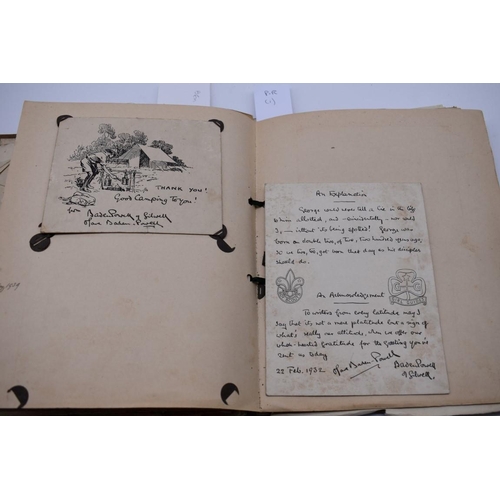 THANK YOU!
Good Camping to you!
from
Baden Powell of Gilwell
Olave Baden-Powell
An Explanation
George could never tell a lie in his life
When allotted, and – incidentally – nor could
I, – without its being spotted! George was
born on double two, of two, two hundred years ago,
so we two, too, got born that day as his disciples
should do.
An Acknowledgement
To writers from every latitude may I
say that it's not a mere platitude but a sign of
what's really our attitude, when we offer our
whole-hearted gratitude for the greeting you've
sent us today
22 Feb. 1932
Olave Baden Powell
Baden Powell
of Gilwell.
1929